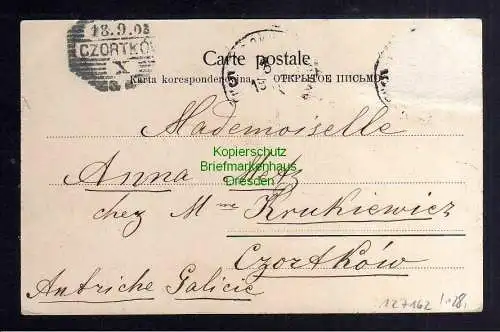 18.9.03
CZORTKÓW
X
Carte postale
Karta korespondencyjna. ОТКРЫТОЕ ПИСЬМО
Mademoiselle
Kopierschutz
Briefmarkenhaus
Dresden
Anna
chez Mme Krukiewicz
Czortków
Autriche Galicie
127162 / 18.